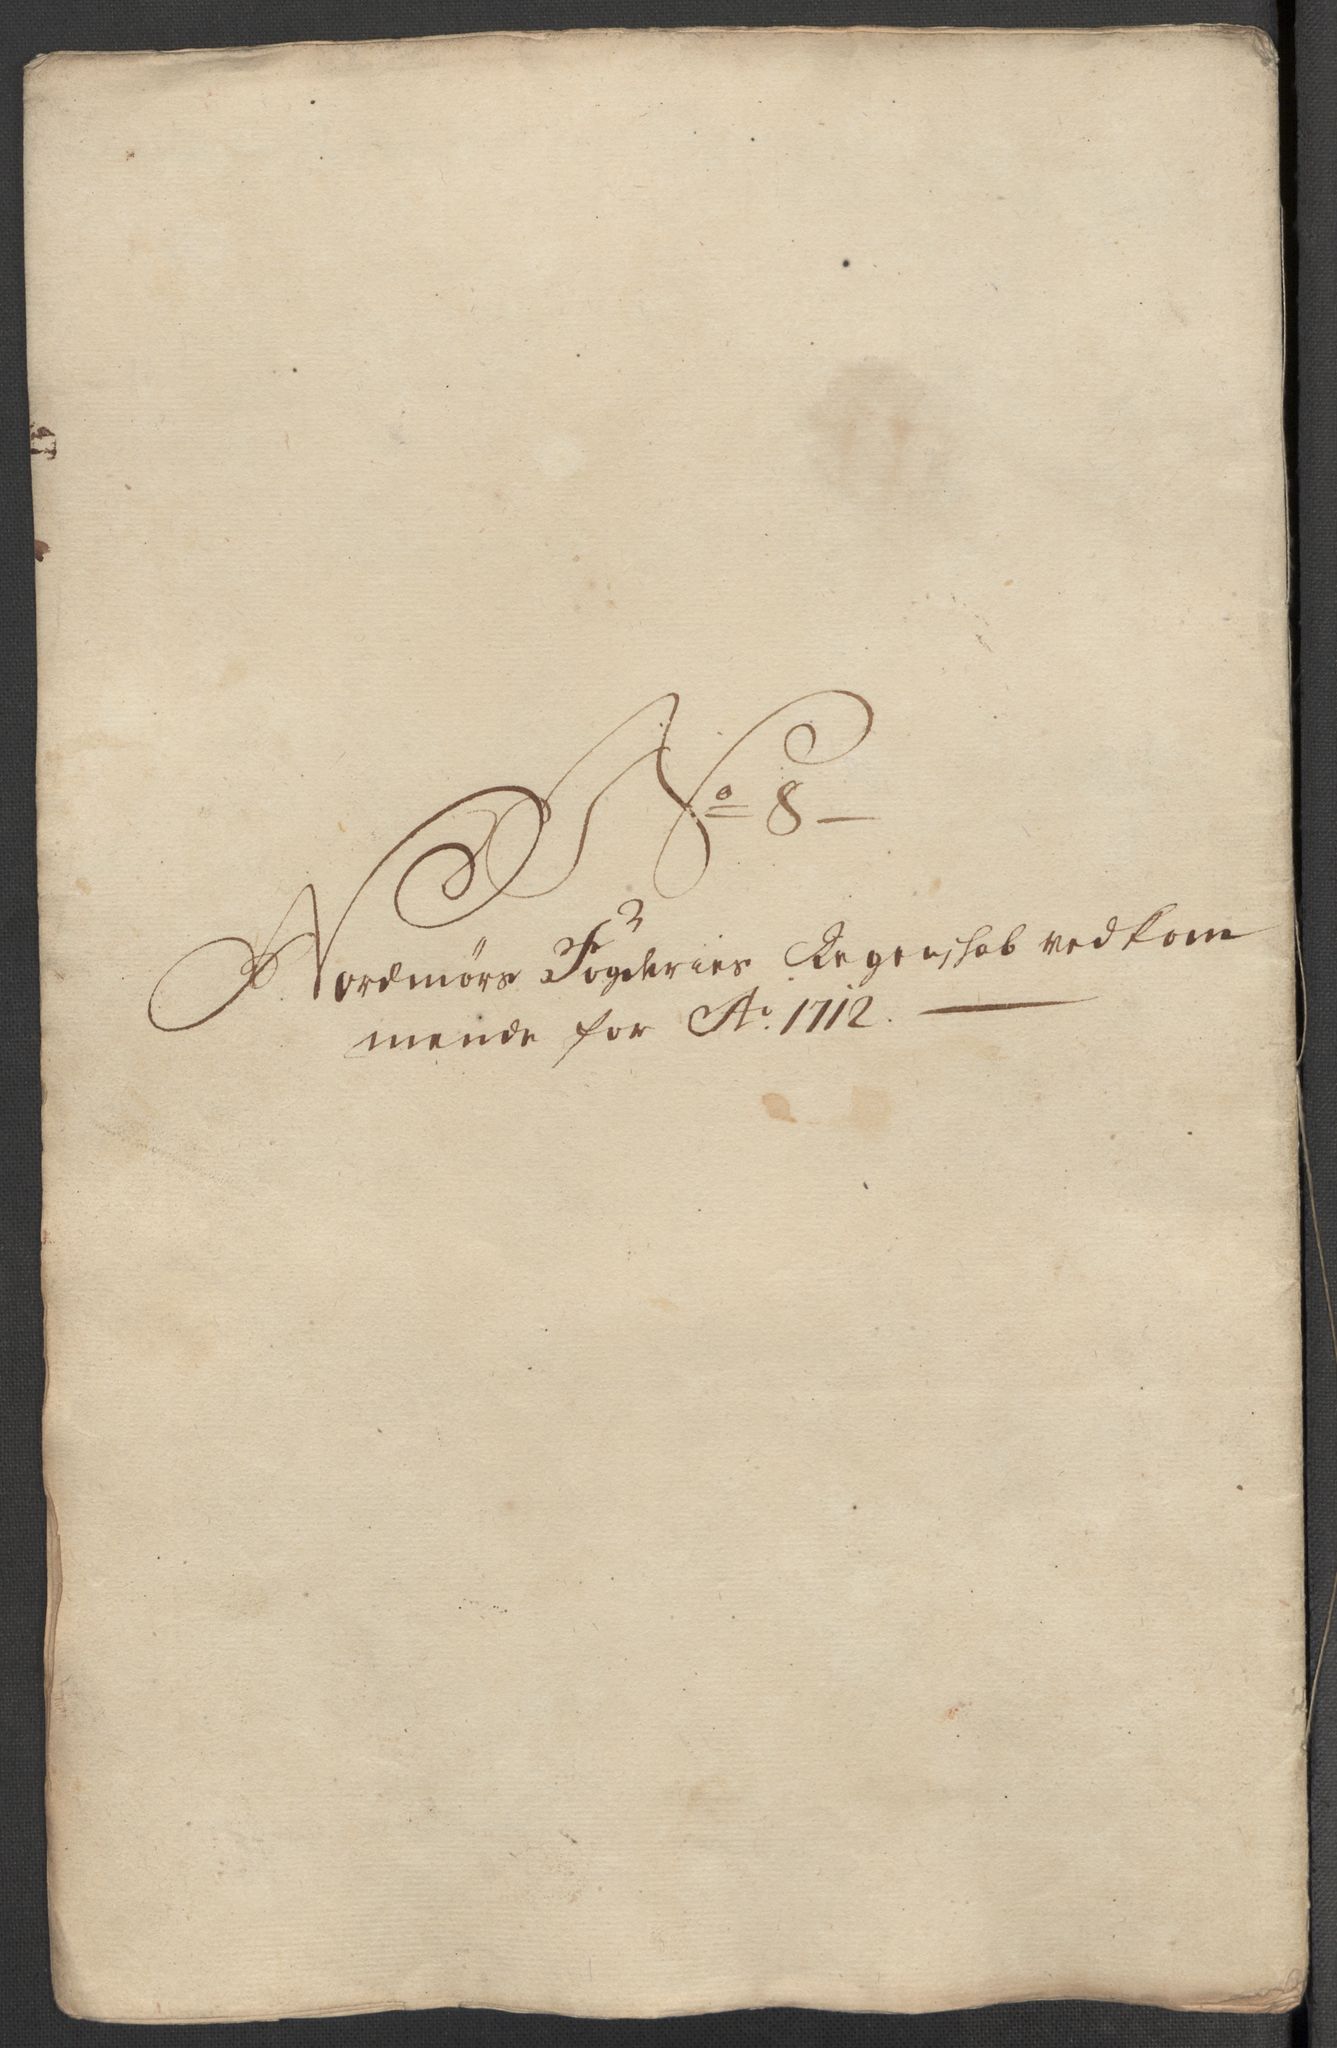 No 8 —
Nordmørs Fogderies Regenskab vedkom
mende for Ao. 1712.